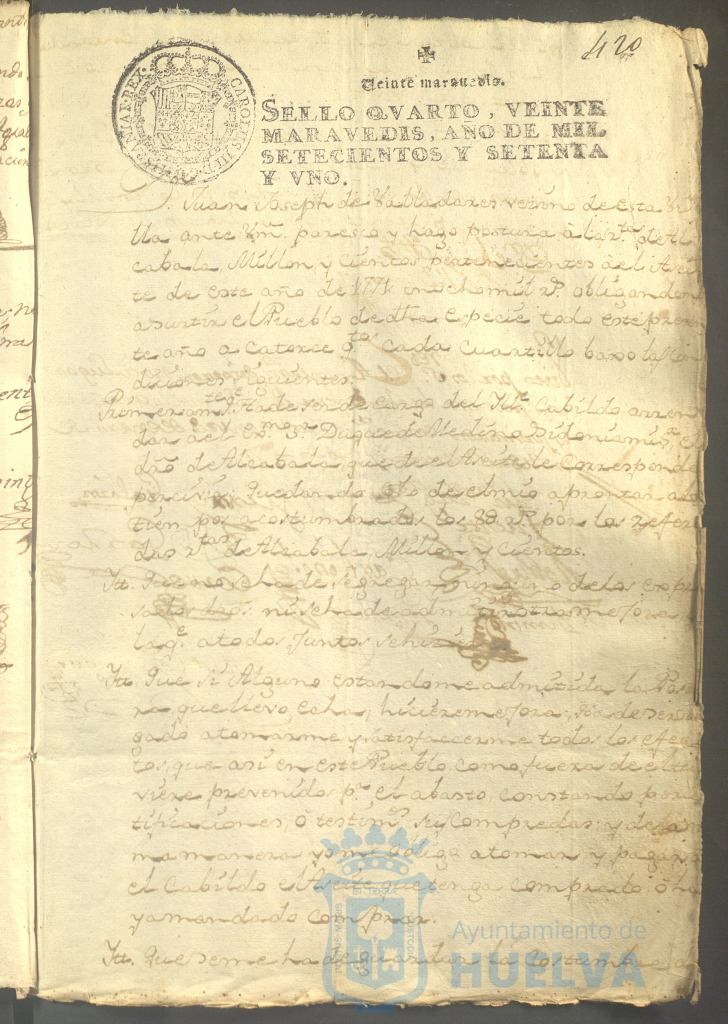 420
Veinte maravedis.
SELLO QVARTO, VEINTE
MARAVEDIS, AÑO DE MIL
SETECIENTOS Y SETENTA
Y VNO.
CAROLUS III
REX
Juan Joseph de Valladares vezino de esta Vi
lla ante Vm. paresco y hago postura à las r.tas de Al
cabala, Millon, y cientos pertenecientes del Asei
te de este año de 1771 en ocho mil r.s obligandom
a surtir el Pueblo de dha especie todo este presen
te año a catorce q.tos cada cuartillo baxo las Con
diciones siguientes.
Primeram.te q.e ha de ser de cargo del Itt.e Cabildo arren
dar del Ex.mo S.or Duque de Medina Sidonia mi s.r el
dro de Alcabala que de el Aseite le Corresponde
percivir; quedando solo de el mio aprontar a los
tiempos acostumbrados los 8@ r.s por las refer
das r.tas de Alcabala, Millon, y cientos.
Itt. Que no se ha de segregar ninguno de los expre
sados dros. ni se ha de admitir otra mejora
la q.e a todos juntos se
Itt. Que si Alguno estandome admitida la Postu
ra que llevo echa, hiciere mejora, ha de ser
gado a tomarme y satisfacerme todos los efec
tos, que asi en este Pueblo como fuera de el tu
viere prevenido p.a el abasto, constando por
tificaciones, ó testim.os sus Compredas; y de la
ma manera yo me obligo a tomar y pagar a
el Cabildo el Aseite que tenga comprado, ó ha
ya mandado comprar.
Itt. Que se me ha de guardar la Costumbre
Ayuntamiento de
HUELVA